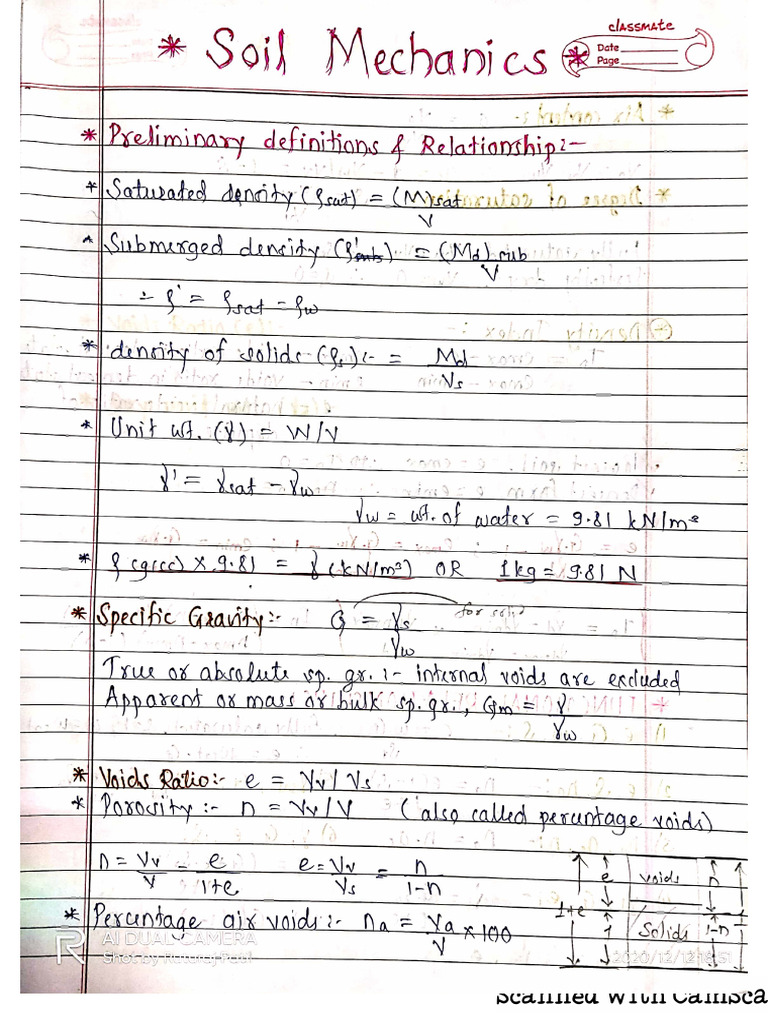 classmate
Date
Page
* Soil Mechanics
* Preliminary definitions & Relationship:-
* Saturated density (ρsat) = (M)sat / V
* Submerged density (ρ') = (Md)sub / V
∴ ρ' = ρsat - ρw
* density of solids (ρs) :- = Md / Vs
* Unit wt. (γ) = W/V
γ' = γsat - γw
γw = wt. of water = 9.81 kN/m³
* ρ (g/cc) × 9.81 = γ (kN/m³) OR 1kg = 9.81 N
* Specific Gravity:- G = γs / γw for solid
True or absolute sp. gr. :- internal voids are excluded
Apparent or mass or bulk sp. gr., Gm = γ / γw
* Voids Ratio:- e = Vv / Vs
* Porosity :- n = Vv/V (also called percuntage voids)
n = Vv / V = e / 1+e e = Vv / Vs = n / 1-n
e voids n
1+e
1 Solids 1-n
* Percuntage air voids :- na = Va / V × 100
AI DUAL CAMERA
Shot by
2020/12/12 18:51
Scanned with CamSca